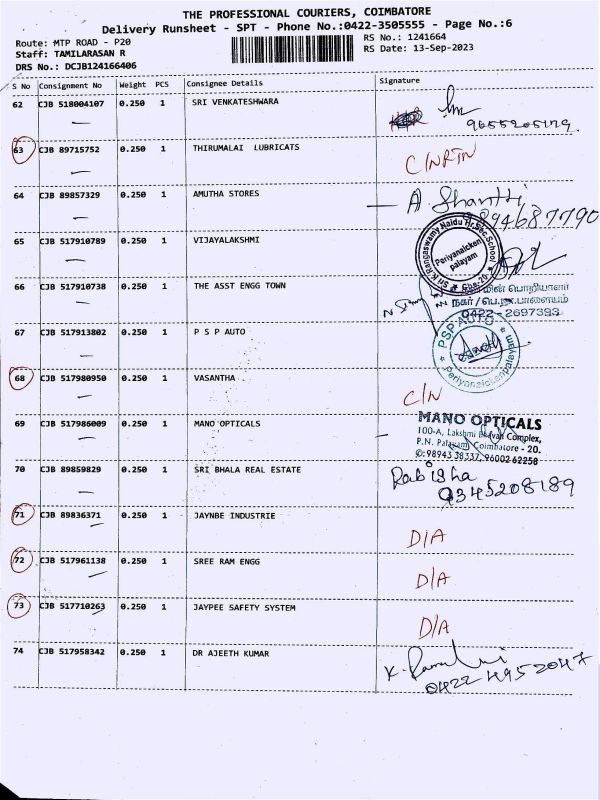 THE PROFESSIONAL COURIERS, COIMBATORE
Delivery Runsheet - SPT - Phone No.:0422-3505555 - Page No.:6
Route: MTP ROAD - P20
RS No.: 1241664
Staff: TAMILARASAN R
RS Date: 13-Sep-2023
DRS No.: DCJB124166406
S No Consignment No Weight PCS Consignee Details Signature
62 CJB 518004107 0.250 1 SRI VENKATESHWARA
9655205179
63 CJB 89715752 0.250 1 THIRUMALAI LUBRICATS C/NRTN
64 CJB 89857329 0.250 1 AMUTHA STORES A. Shantti
9894687790
65 CJB 517910789 0.250 1 VIJAYALAKSHMI
Sri K.Rangaswamy Naidu Hr.Sec.School
Periyanaicken
palayam
66 CJB 517910738 0.250 1 THE ASST ENGG TOWN
மின் பொறியாளர்
நகர்/பெ.நா.பாளையம்
0422-2697393
67 CJB 517913802 0.250 1 P S P AUTO
PSP AUTO
Periyanaickenpalayam
68 CJB 517980950 0.250 1 VASANTHA C/N
69 CJB 517986009 0.250 1 MANO OPTICALS
MANO OPTICALS
100-A, Lakshmi Bhavan Complex,
P.N. Palayam Coimbatore - 20.
✆:98943 38337, 96002 62258
70 CJB 89859829 0.250 1 SRI BHALA REAL ESTATE Rabisha
9345208189
71 CJB 89836371 0.250 1 JAYNBE INDUSTRIE D/A
72 CJB 517961138 0.250 1 SREE RAM ENGG D/A
73 CJB 517710263 0.250 1 JAYPEE SAFETY SYSTEM D/A
74 CJB 517958342 0.250 1 DR AJEETH KUMAR
0422 4952047